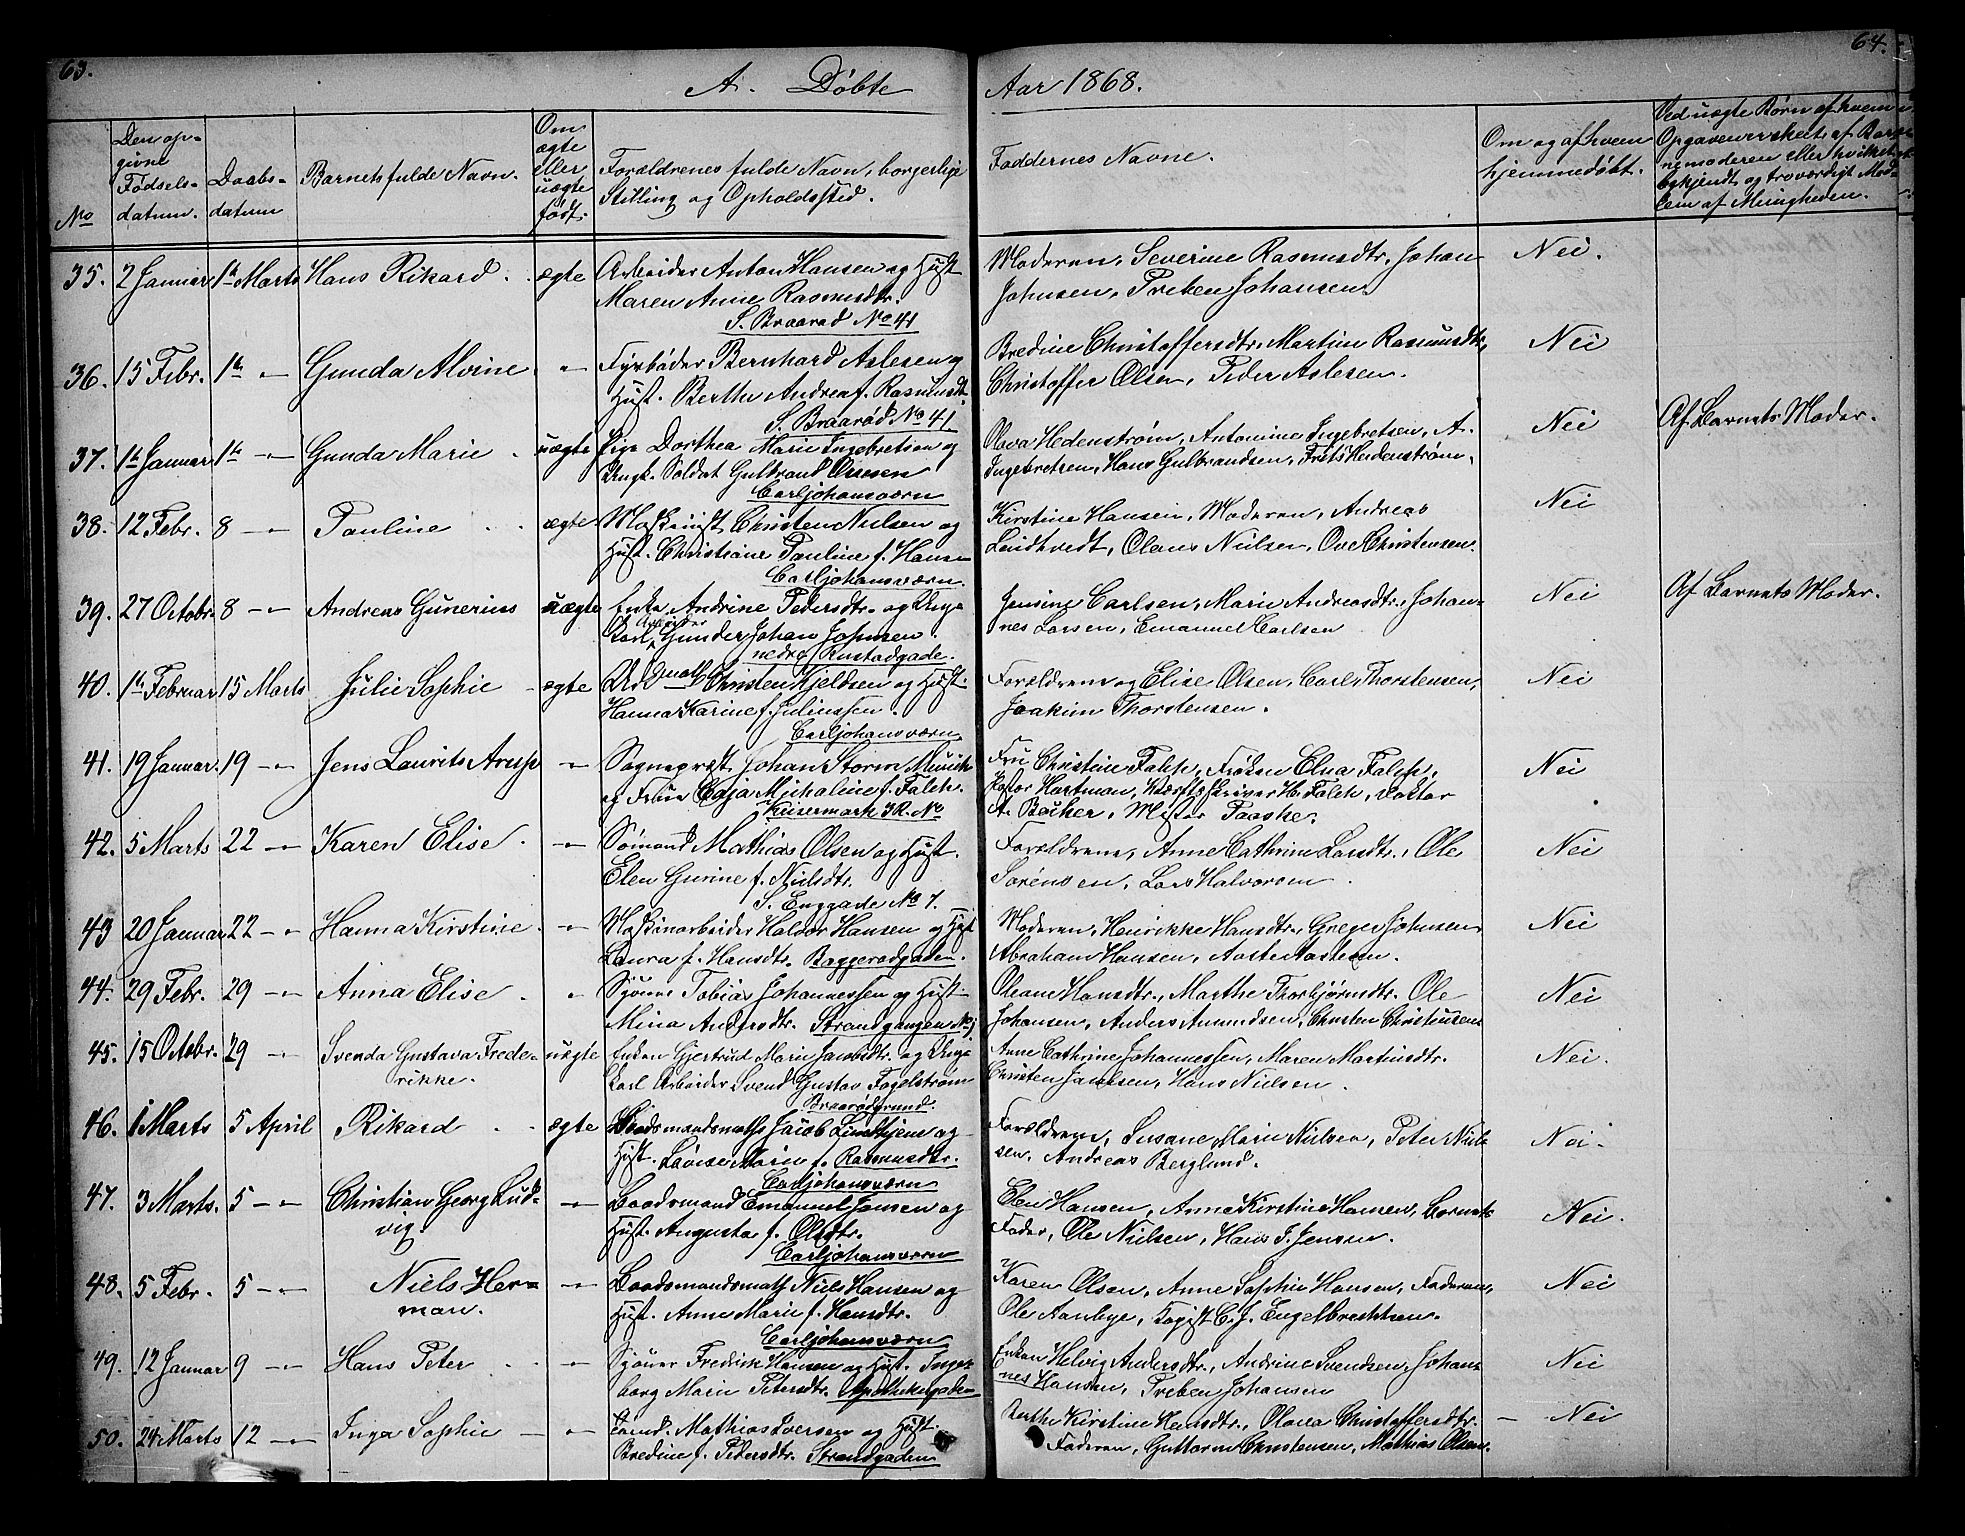 63.
64.
A. Døbte
Aar 1868.
No
Den op=
givne
Fødsels=
datum.
Daabs=
datum
Barnets fulde Navn.
Om
ægte
eller
uægte
født.
Forældrenes fulde Navn, borgerlige
Stilling og Opholdssted.
Faddernes Navne.
Om og af hvem
hjemmedøbt.
Ved uægte Børn af hvem
Opgaven er skeet, af Bar=
nemoderen eller hvilket
bekjendt og troværdigt Med=
lem af Menigheden.
35. 2 Januar 1ste Marts Hans Rikard. ægte Arbeider Anton Hansen og Hust
Maren Anne Rasmusdtr.
S. Braarød No 41
Moderen, Severine Rasmusdtr, Johan
Johnsen, Preben Johansen.
Nei.
36. 15 Febr. 1ste -"- Gunda Alvine. -"- Fyrbøder Bernhard Aslesen og
Hust. Berthe Andrea f. Rasmusdtr.
S. Braarød No 41
Bredine Christoffersdtr, Martine Rasmusdtr,
Christoffer Olsen, Peder Aslesen.
Nei
37. 1ste Januar 1ste -"- Gunda Marie. uægte Pige Dorthea Marie Ingebretsen og
Ungk. Soldat Gulbrand Olsesen
Carljohansværn
Olava Hedenstrøm, Antonine Ingebretsen, A.
Ingebretsen, Hans Gulbrandsen, Frits Hedenstrøm.
Nei
Af Barnets Moder.
38. 12 Febr. 8 -"- Pauline ægte Maskinist Christen Nielsen og
Hust. Christiane Pauline f. Hansen
Carljohansværn.
Kirstine Hansen, Moderen, Andreas
Lindtvedt, Olaus Nielsen, Ove Christensen.
Nei
39. 27 Octobr. 8 -"- Andreas Gunerius uægte Enke Andrine Pedersdtr. og Unge
Karl, Arbeider Gunder Johan Johnsen.
nedre Rustadgade.
Jensine Carlsen, Marie Andreasdtr., Johan=
nes Larsen, Emanuel Carlsen
Nei
Af Barnets Moder.
40. 1ste Februar 15 Marts Julie Sophie ægte Christen Kjeldsen og Hust.
Hanna Karine f. Juliussen.
Carljohansværn
Forældrene og Elise Olsen, Carl Thorstensen,
Joakim Thorstensen.
Nei
41. 19 Januar. 19 -"- Jens Laurits Arup -"- Sognepræst Johan Storm Munch
og Frue Edja Michaline f. Falch.
Fru Christine Falch, Frøken Elna Falch,
Pastor Hartman, H. Falch, Doktor
A. Backer, Mester Paaske.
Nei
42. 5 Marts 22 -"- Karen Elise. -"- Sømand Mathias Olsen og Hust.
Elen Gurine f. Nielsdtr.
S. Enggade No 7.
Forældrene, Anne Cathrine Larsdtr., Ole
Sørensen, Lars Halvorsen.
Nei
43 20 Januar 22 -"- Hanna Kirstine. -"- Maskinarbeider Haldor Hansen og Hust
Laura f. Hansdtr. Baggerødgaden.
Moderen, Henrikke Hansdtr., Greger Johnsen
Abraham Hansen,
Nei
44. 29 Febr. 29 -"- Anna Elise. " Sjouer Tobias Johannessen og Hust.
Mina Andersdtr. Strandgangen
Oleane Hansdtr., Marthe Thorbjørnsdtr. Ole
Johansen, Anders Amundsen, Christen Christiansen
Nei
45. 15 Octobr. 29 -"- Svenda Gustava Frede=
rikke. uægte Enken Gjertrud Marie Jacobsdtr. og Unge
Karl Arbeider Svend Gustav Fogelstrøm
Braarødgrund.
Anne Cathrine Johannessen, Maren Martinsdtr.
Christen Jacobsen, Hans Nielsen.
Nei.
46. 1 Marts 5 April Rikard ægte Baadsmandsmath Jacob og
Hust. Lovise Marie f. Rasmusdtr.
Carljohansværn
Forældrene, Susane Marie Nielsen, Peter Niel=
sen, Andreas Berglund.
Nei.
47. 3 Marts. 5 -"- Christian Georg Lud=
vig. -"- Baadsmand Emanuel Jensen og
Hust. Augusta f. Olsdtr.
Carljohansværn
Elen Hansen, Anne Kirstine Hansen, Barnets
Fader, Ole Nielsen, Hans J. Jensen.
Nei.
48. 5 Febr. 5 -"- Niels Her=
man. -"- Baadsmandsmath Niels Hansen og
Hust. Anne Marie f. Hansdtr.
Carljohansværn
Karen Olsen, Anne Sophie Hansen, Faderen,
Ole Aanbye, C. J. Engelbrechtsen.
Nei
49. 12 Januar 9 -"- Hans Peter -"- Sjouer Fredrik Hansen og Hust. Inge=
borg Marie Petersdtr. Apothekergaden
Enken Helvig Andersdtr., Andrine Svendsen, Johan=
nes Hansen, Preben Johansen
Nei
50. 24 Marts 12 -"- Inger Sophie -"- Tømd. Mathias Iversen og Hust.
Bredine f. Pedersdtr. Strandgaden
Berthe Kirstine Hansdtr., Olava Christoffersdtr.
Faderen, Guttorm Christensen, Mathias Olsen.
Nei